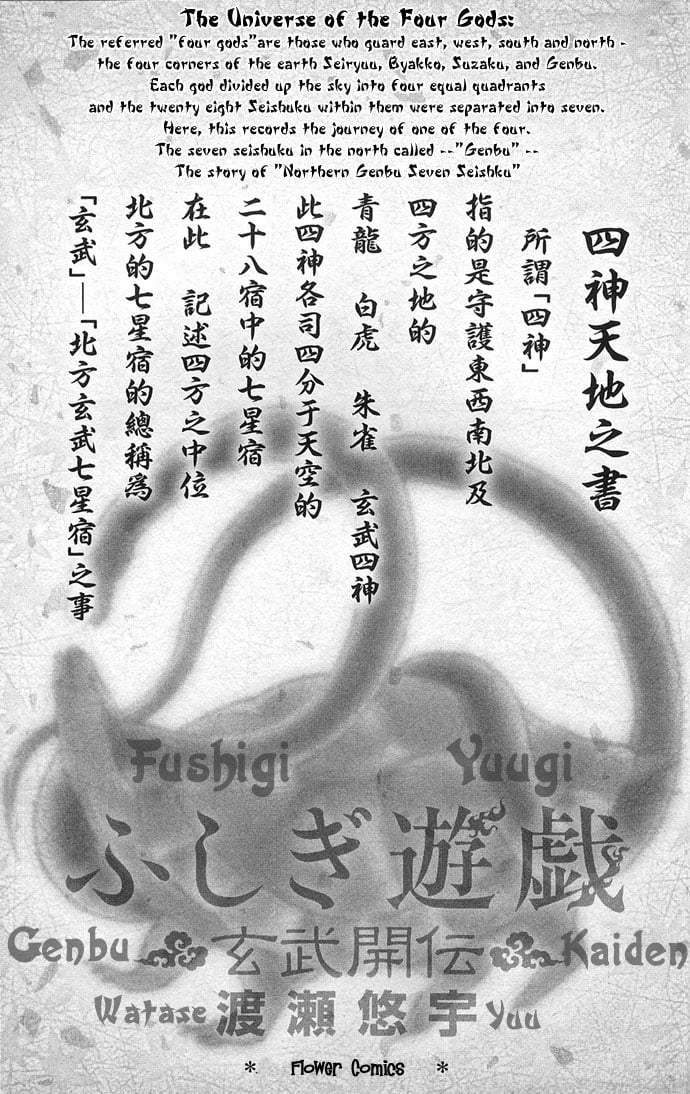 The Universe of the Four Gods:
The referred "four gods"are those who guard east, west, south and north -
the four corners of the earth Seiryuu, Byakko, Suzaku, and Genbu.
Each god divided up the sky into four equal quadrants
and the twenty eight Seishuku within them were separated into seven.
Here, this records the journey of one of the four.
The seven seishuku in the north called --"Genbu" --
The story of "Northern Genbu Seven Seishku"
四神天地之書
所謂「四神」
指的是守護東西南北及
四方之地的
青龍 白虎 朱雀 玄武四神
此四神各司四分于天空的
二十八宿中的七星宿
在此 記述四方之中位
北方的七星宿的總稱為
「玄武」—「北方玄武七星宿」之事
Fushigi Yuugi
ふしぎ遊戯
Genbu 玄武開伝 Kaiden
Watase 渡瀬悠宇 Yuu
* Flower Comics *